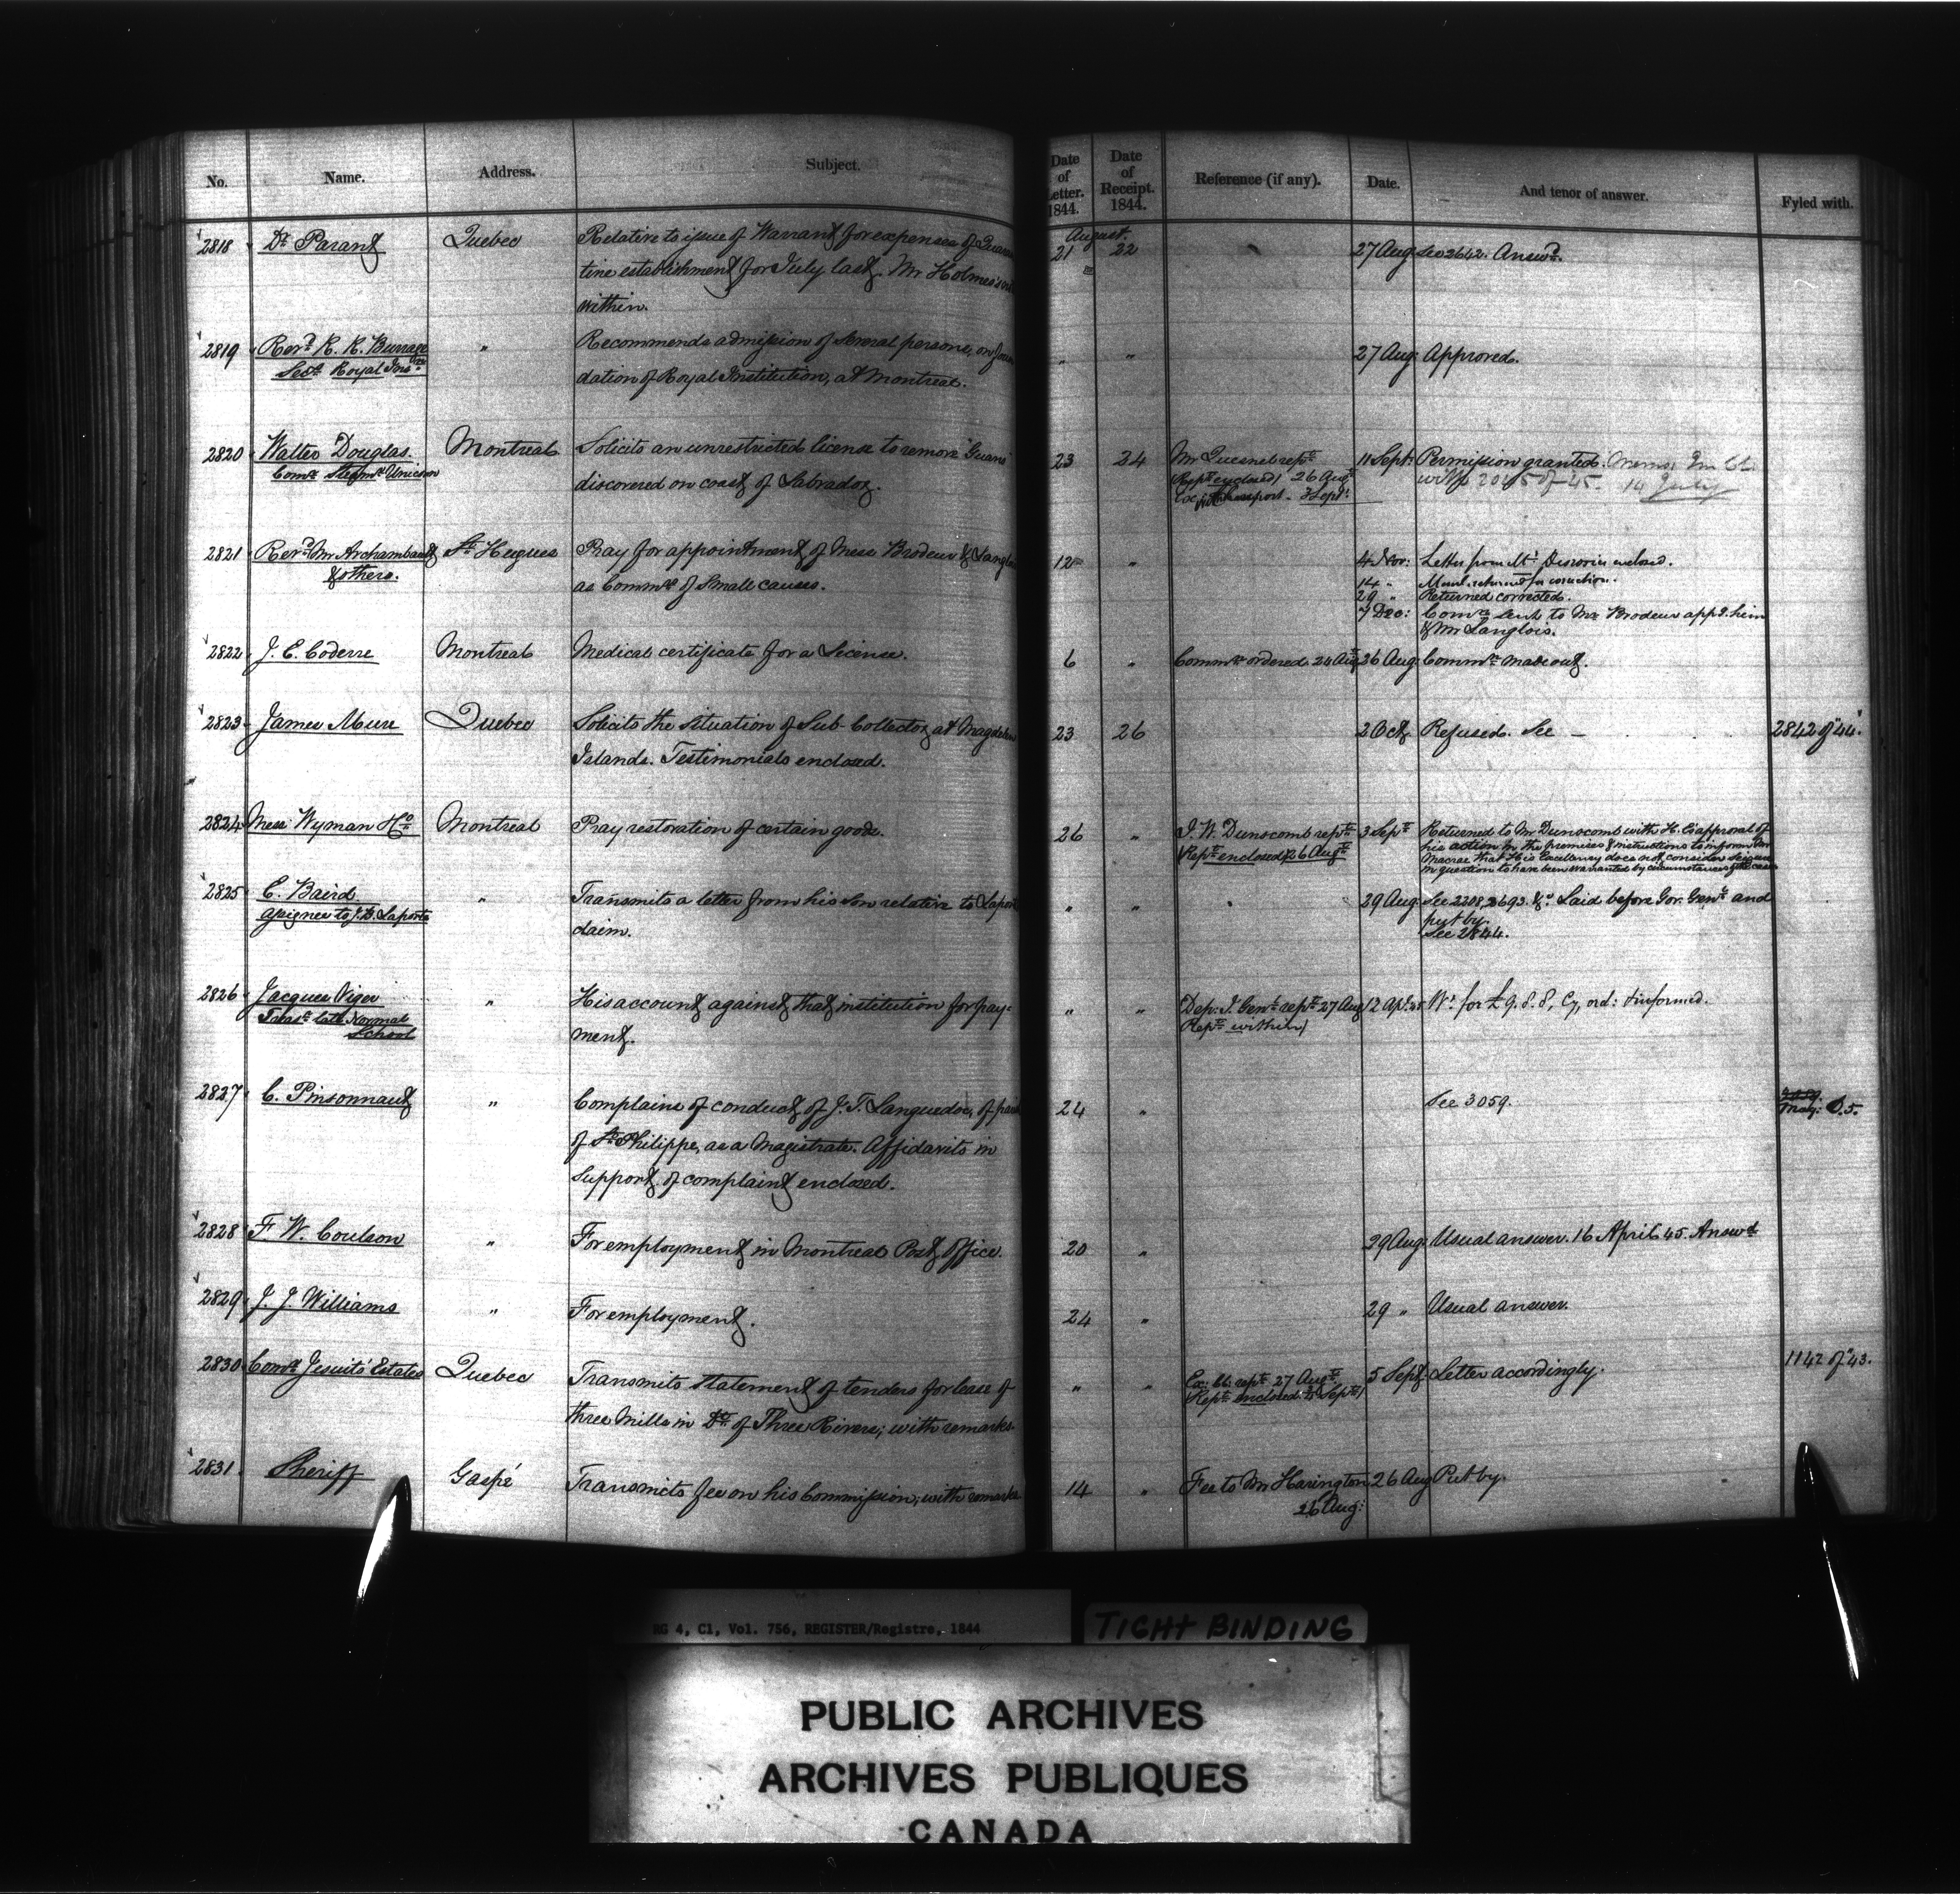 No. Name. Address. Subject. Date of Letter. 1844. Date of Receipt. 1844. Reference (if any). Date. And tenor of answer. Fyled with.
August.
2818 Dr Parant Quebec Relative to issue of Warrant for expenses of Quaran 21 22 27 Aug See 2642. Answd.
tine establishment for July last. Mr Holmes's
within.
2819 Revd R. R. Burrage " Recommends admission of several persons, on foun " " 27 Aug: Approved.
Secy Royal Insn dation of Royal Institution, at Montreal.
2820 Walter Douglas. Montreal Solicits an unrestricted license to remove "Guano" 23 24 Mr Quesnel reptd 11 Sept: Permission granted.
Comr Steamr Unicorn discovered on coast of Labrador. (Rept enclosed) 26 Augt with 2045 of 45. 14 July
3 Sept:
2821 Revd Mr Archambault St Hugues Pray for appointment of Mess Brodeur & Langlois 12 " 4 Nov: Letter from Mr enclosed.
& others. as Commrs of Small causes. 14 " Meml. returned for correction.
29 " Returned corrected.
7 Dec: Comn sent to Mr Brodeur appg. him
& Mr Langlois.
2822 J. E. Coderre Montreal Medical certificate for a License. 6 " Commn ordered 24 Augt 26 Aug: Commn made out.
2823 James Mure Quebec Solicits the situation of Sub Collector at Magdalen 23 26 2 Oct Refused. See — 2842 of 44.
Islands. Testimonials enclosed.
2824 Mess: Wyman & Co Montreal Pray restoration of certain goods. 26 " J. W. Dunscomb reptd 3 Sept Returned to Mr Dunscomb with H. E's approval of
(Rept enclosed) 26 Augt his action in the premises & instructions to inform Mr
Macrae that His Excellency does not consider seizure
in question to have been warranted by circumstances of the case
2825 E. Baird " Transmits a letter from his son relative to Laporte " " 29 Aug: See 2208, 2693. &c. Laid before Gov. Genl and
assignee to J. B. Laporte claim. put by.
See 2844.
2826 Jacques Viger " His account against that institution for pay- " " Dep: I. Genl reptd 27 Aug 12 Apl. 45 Wt for £9. 8. 8, Cy, ord: & informed.
Treasr late Normal ment. Rept within)
School
2827 C. Pinsonnault " Complains of conduct of J. T. Languedoc, of par 24 " See 3059. 3059.
of St Philippe, as a Magistrate. Affidavits in Mag: D. 5.
support of complaint enclosed.
2828 F. W. Coulson " For employment in Montreal Post Office. 20 " 29 Aug: Usual answer. 16 April 45. Answd
2829 J. J. Williams " For employment. 24 " 29 " Usual answer.
2830 Comr Jesuits' Estates Quebec Transmits statement of tenders for lease of " " Ex: Cl. reptd 27 Augt 5 Sept Letter accordingly. 1142 of 43.
three Mills in Dt of Three Rivers; with remarks. (Rept enclosed Sept)
2831 Sheriff Gaspé Transmits fee on his Commission; with remarks 14 " Fee to Mr Harington 26 Aug Put by.
26 Aug:
RG 4, C1, Vol. 756, REGISTER/Registre, 1844
TIGHT BINDING
PUBLIC ARCHIVES
ARCHIVES PUBLIQUES
CANADA